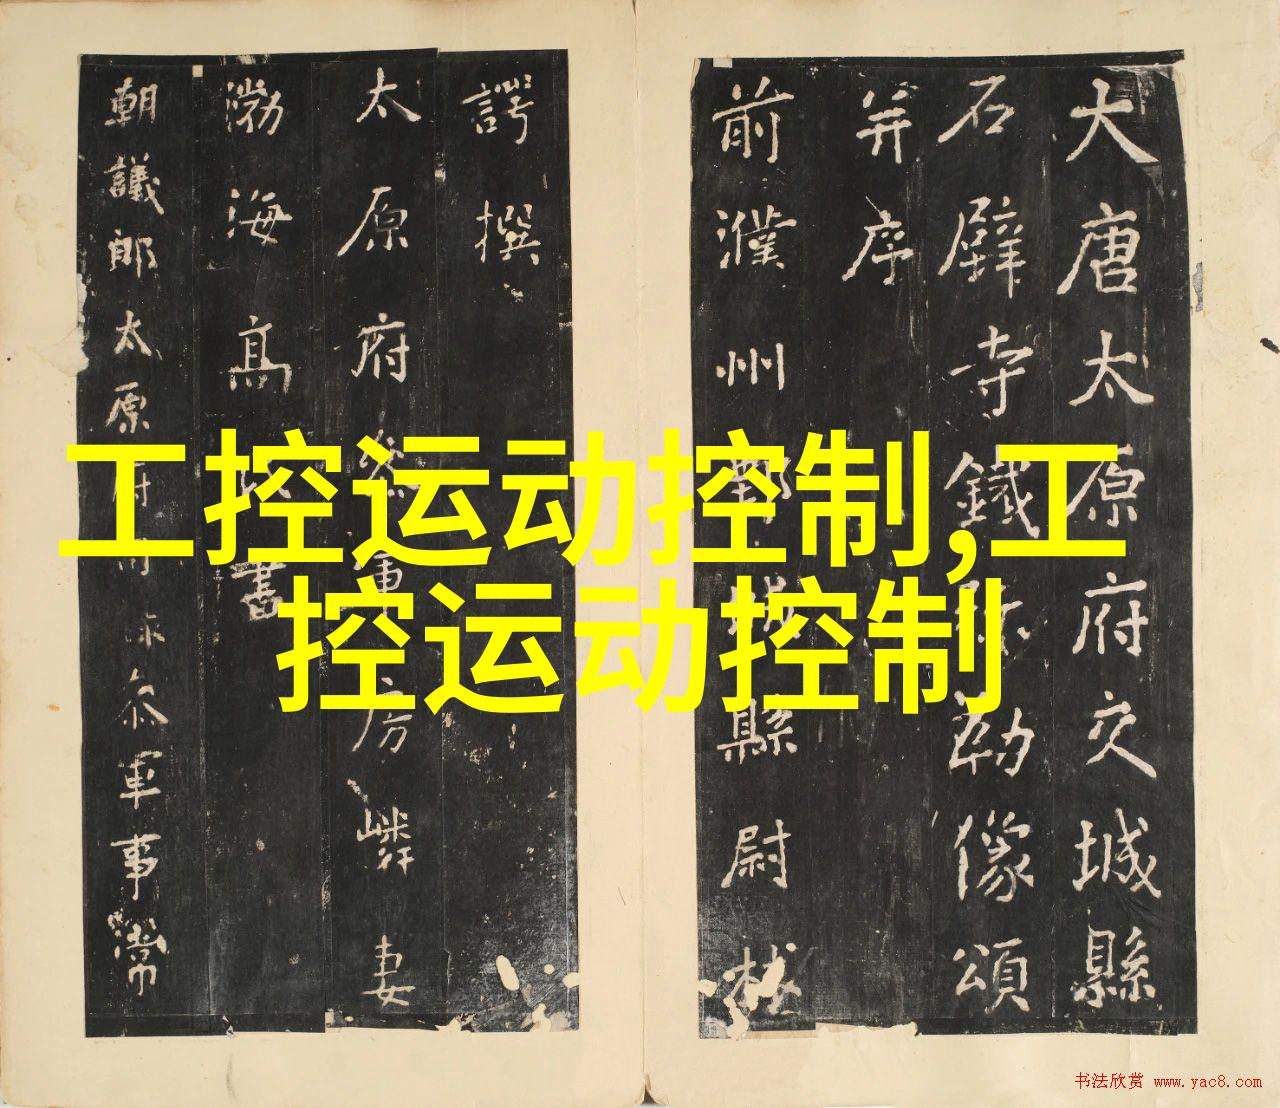 大唐太原府交城縣
石壁寺鐵勒像頌
并序
前濮州城縣尉林
諤撰
太原府軍房嶙妻
渤海高書
朝議郎太原府參軍事常
工控运动控制,工
控运动控制
书法欣赏 www.yac8.com